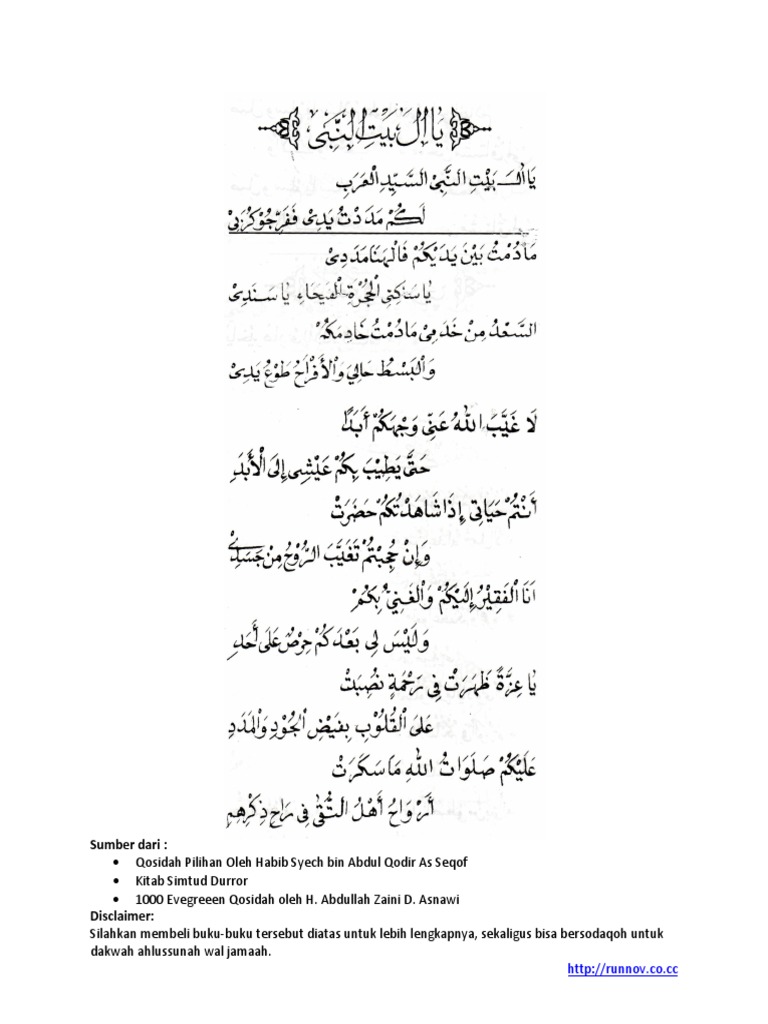 يَااٰلَ بَيْتِ النَّبِيْ
يَااٰلَ بَيْتِ النَّبِيْ السَّيِّدِ الْعَرَبِ
لَكُمْ مَدَدْتُ يَدِيْ فَفَرِّجُوْ كُرَبِيْ
مَادُمْتُ بَيْنَ يَدَيْكُمْ فَالْهَنَا مَدَدِيْ
يَا سَاكِنِي الْحُجْرَةِ الْفَيْحَاءِ يَا سَنَدِيْ
السَّعْدُ مِنْ خَدَمِيْ مَادُمْتُ خَادِمَكُمْ
وَالْبَسْطُ حَالِيْ وَالْأَفْرَاحُ طَوْعُ يَدِيْ
لَا غَيَّبَ اللّٰهُ عَنِّيْ وَجْهَكُمْ أَبَدًا
حَتَّى يَطِيْبَ بِكُمْ عَيْشِيْ إِلَى الْأَبَدِ
أَنْتُمْ حَيَاتِيْ إِذَا شَاهَدْتُكُمْ حَضَرَتْ
وَإِنْ حُجِبْتُمْ تَغَيَّبَ الرُّوْحُ مِنْ جَسَدِيْ
اَنَا الْفَقِيْرُ إِلَيْكُمْ وَالْغَنِيُّ بِكُمْ
وَلَيْسَ لِيْ بَعْدَكُمْ حِرْصٌ عَلَى أَحَدِ
يَا عِزَّةً ظَهَرَتْ فِيْ رَحْمَةٍ نُصِبَتْ
عَلَى الْقُلُوْبِ بِفَيْضِ الْجُوْدِ وَالْمَدَدِ
عَلَيْكُمْ صَلَوَاتُ اللّٰهِ مَا سَكَرَتْ
أَرْوَاحُ أَهْلُ التُّقَى فِيْ رَاحِ ذِكْرِهِمِ
Sumber dari :
• Qosidah Pilihan Oleh Habib Syech bin Abdul Qodir As Seqof
• Kitab Simtud Durror
• 1000 Evegreeen Qosidah oleh H. Abdullah Zaini D. Asnawi
Disclaimer:
Silahkan membeli buku-buku tersebut diatas untuk lebih lengkapnya, sekaligus bisa bersodaqoh untuk
dakwah ahlussunah wal jamaah.
http://runnov.co.cc